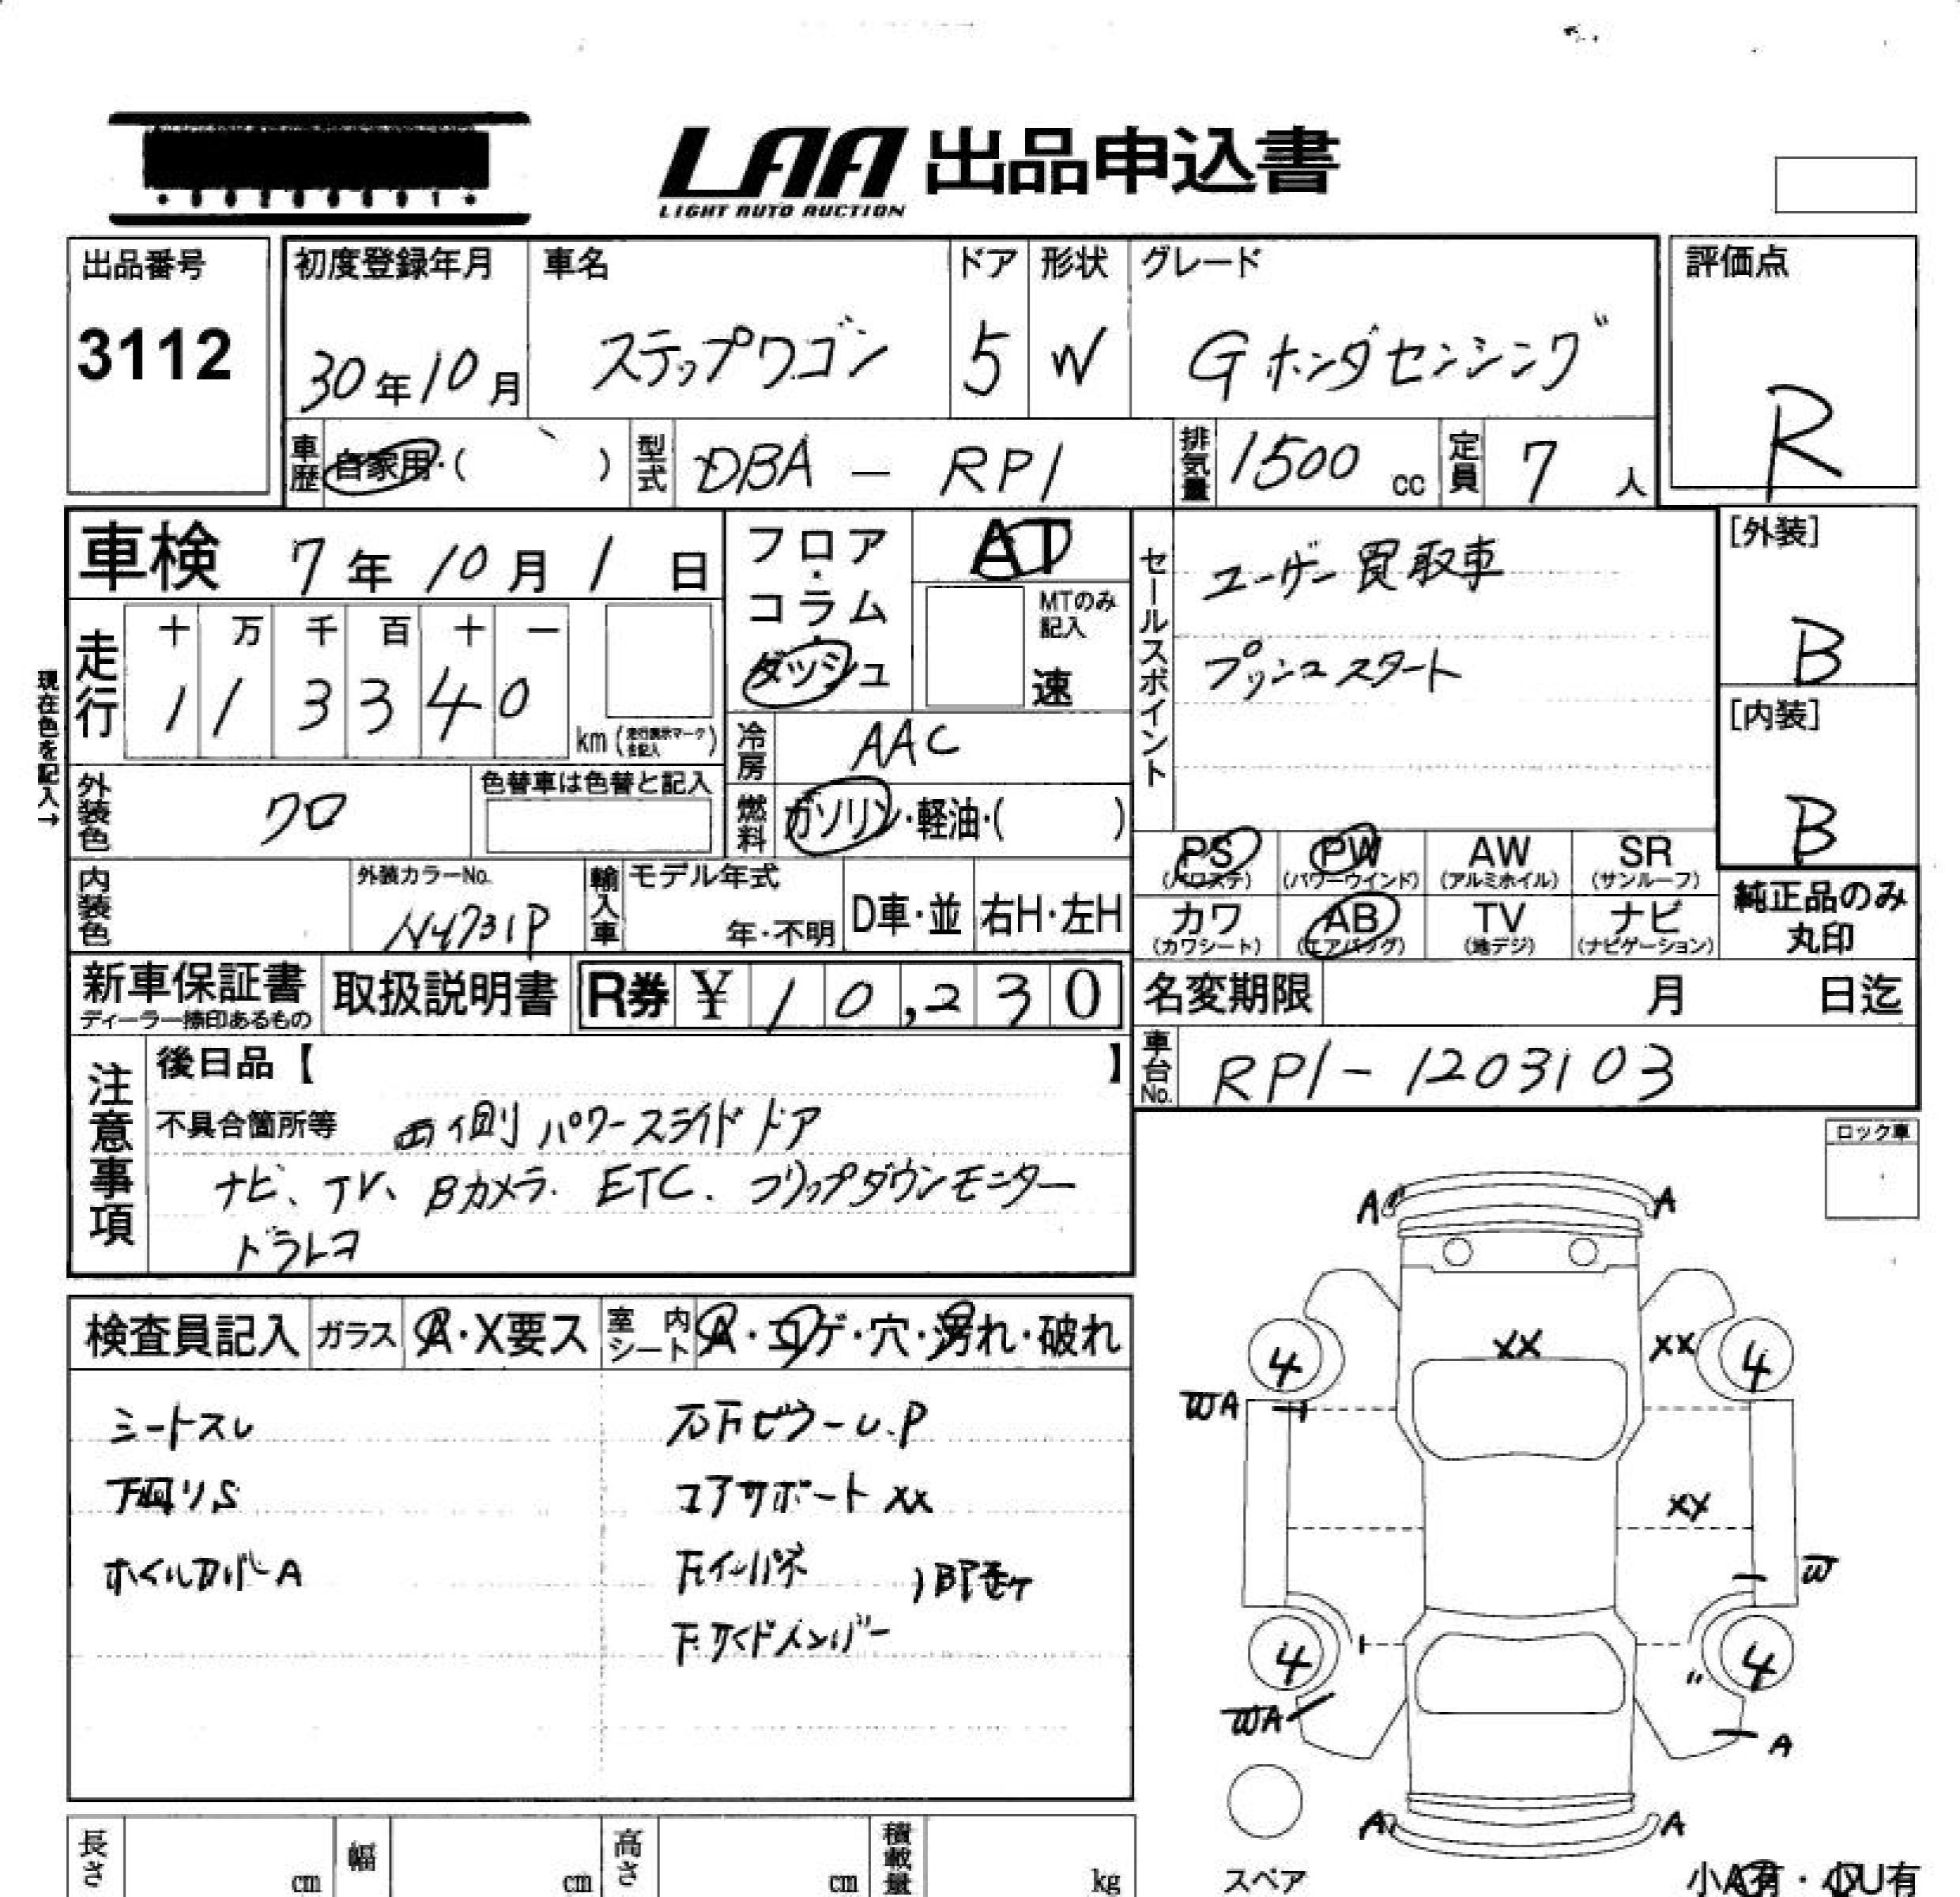 LAA 出品申込書
LIGHT AUTO AUCTION
出品番号
3112
初度登録年月
30年10月
車名
ステップワゴン
ドア
5
形状
W
グレード
Gホンダセンシング
評価点
R
車歴 自家用・( )
型式 DBA - RP1
排気量 1500 cc
定員 7 人
車検 7年10月1日
フロア・コラム・ダッシュ
AT
MTのみ記入
速
セールスポイント
ユーザー買取車
プッシュスタート
[外装]
B
[内装]
B
現在色を記入→
走行
十 万 千 百 十 一
1 1 3 3 4 0
km
冷房 AAC
外装色 クロ
色替車は色替と記入
燃料 ガソリン・軽油・( )
PS (パワステ)
PW (パワーウインド)
AW (アルミホイル)
SR (サンルーフ)
カワ (カワシート)
AB (エアバッグ)
TV (地デジ)
ナビ (ナビゲーション)
純正品のみ
丸印
内装色
外装カラーNo.
NH731P
輸入車
モデル年式
年・不明
D車・並
右H・左H
新車保証書
ディーラー捺印あるもの
取扱説明書
R券 ¥ 10,230
名変期限 月 日迄
車台No. RP1-1203103
注意事項
後日品【 】
不具合箇所等 両側パワースライドドア
ナビ、TV、Bカメラ. ETC. フリップダウンモニター
ドラレコ
ロック車
検査員記入
ガラス A・X要ス
室内シート A・コゲ・穴・汚れ・破れ
シートスレ
下回りS
ホイルカバーA
コアサポート XX
Fインパネ
F.サイドメンバー
A A
XX XX
4 4
WA
XX
W
4 4
WA
A
A A
スペア
小A有・小U有
長さ cm
幅 cm
高さ cm
積載量 kg